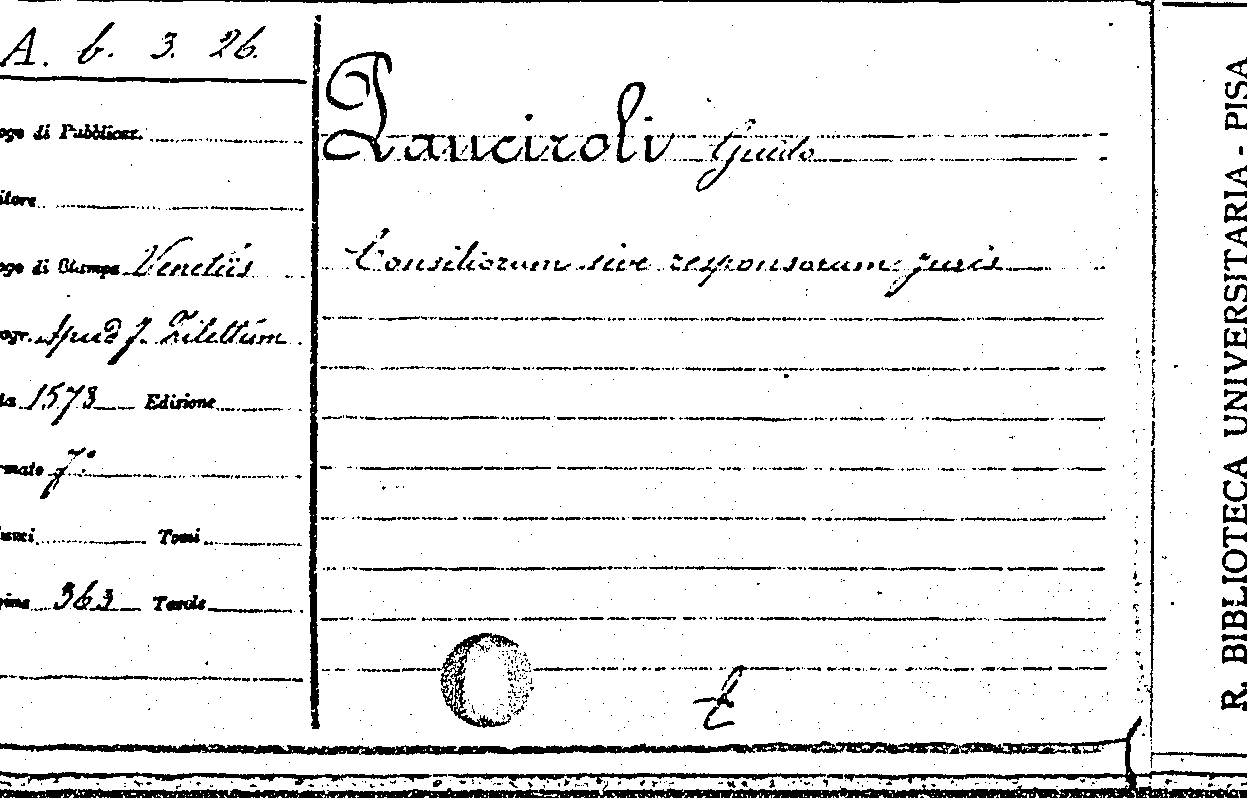 A. b. 3. 26.
Panciroli Guido
Consiliorum sive responsorum juris
ogo di Pubblicaz.
itore
ogo di Stampa Venetiis
ogr. Apud J. Zilettum
ta 1573 Edizione
rmato f.°
lumi Tomi
gine 363 Tavole
R. BIBLIOTECA UNIVERSITARIA - PISA